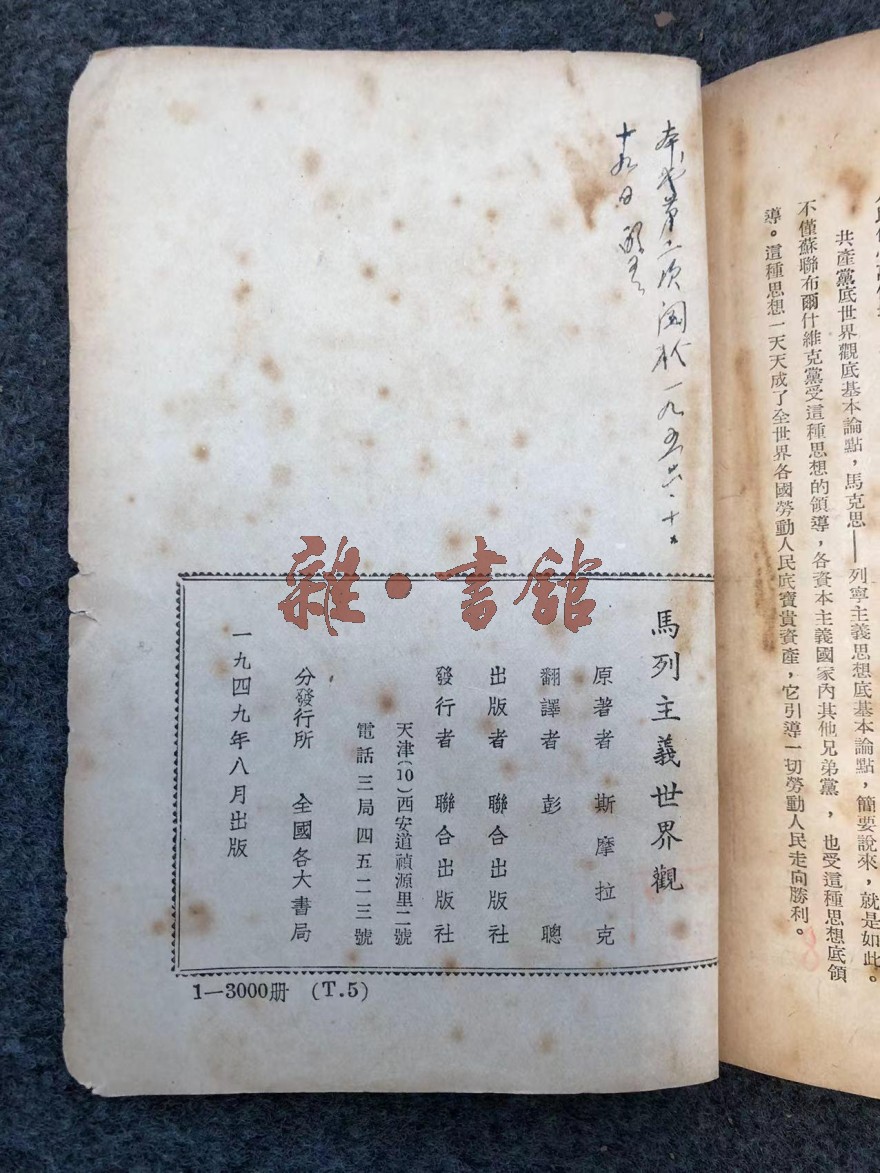 共產黨底世界觀底基本論點，馬克思——列寧主義思想底基本論點，簡要說來，就是如此。
不僅蘇聯布爾什維克黨受這種思想的領導，各資本主義國家內其他兄弟黨，也受這種思想底領
導。這種思想一天天成了全世界各國勞動人民底寶貴資產，它引導一切勞動人民走向勝利。
本書第二次閱於一九五六·十·
十九日
雜·書館
馬列主義世界觀
原著者 斯摩拉克
翻譯者 彭聰
出版者 聯合出版社
發行者 聯合出版社
天津(10)西安道禎源里二號
電話三局四五二三號
分發行所 全國各大書局
一九四九年八月出版
1—3000册 (T.5)